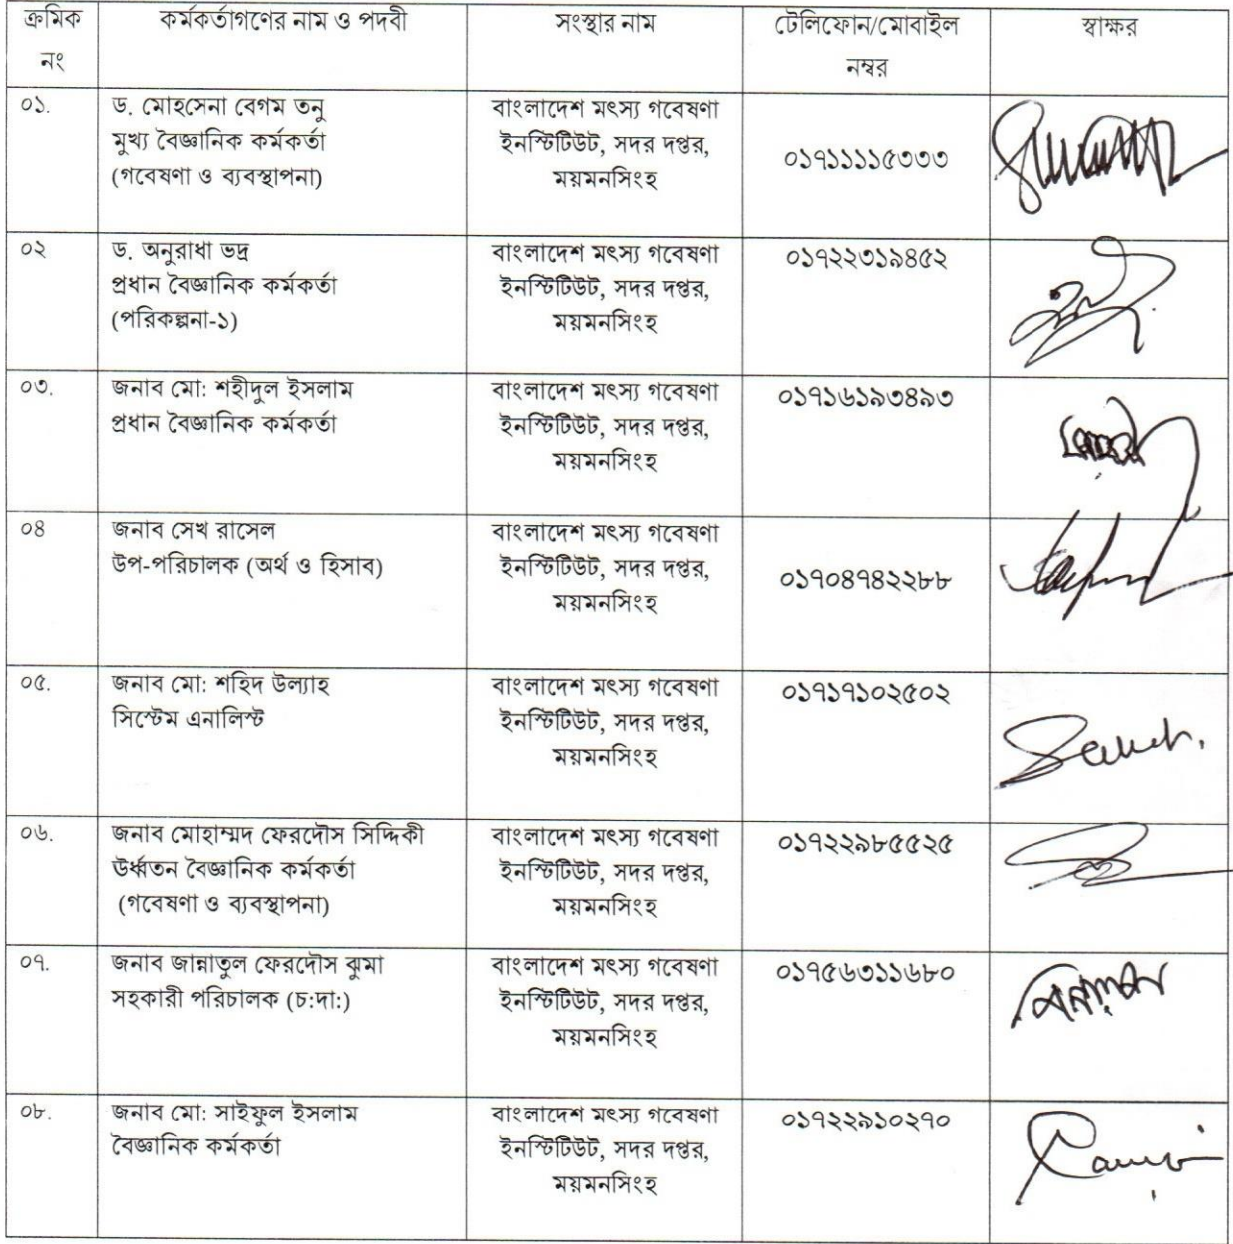 ক্রমিক নং
কর্মকর্তাগণের নাম ও পদবী
সংস্থার নাম
টেলিফোন/মোবাইল নম্বর
স্বাক্ষর
০১.
ড. মোহসেনা বেগম তনু
মুখ্য বৈজ্ঞানিক কর্মকর্তা
(গবেষণা ও ব্যবস্থাপনা)
বাংলাদেশ মৎস্য গবেষণা
ইনস্টিটিউট, সদর দপ্তর,
ময়মনসিংহ
০১৭১১১১৫৩৩৩
০২
ড. অনুরাধা ভদ্র
প্রধান বৈজ্ঞানিক কর্মকর্তা
(পরিকল্পনা-১)
বাংলাদেশ মৎস্য গবেষণা
ইনস্টিটিউট, সদর দপ্তর,
ময়মনসিংহ
০১৭২২৩১৯৪৫২
০৩.
জনাব মো: শহীদুল ইসলাম
প্রধান বৈজ্ঞানিক কর্মকর্তা
বাংলাদেশ মৎস্য গবেষণা
ইনস্টিটিউট, সদর দপ্তর,
ময়মনসিংহ
০১৭১৬১৯৩৪৯৩
০৪
জনাব সেখ রাসেল
উপ-পরিচালক (অর্থ ও হিসাব)
বাংলাদেশ মৎস্য গবেষণা
ইনস্টিটিউট, সদর দপ্তর,
ময়মনসিংহ
০১৭০৪৭৪২২৮৮
০৫.
জনাব মো: শহিদ উল্যাহ
সিস্টেম এনালিস্ট
বাংলাদেশ মৎস্য গবেষণা
ইনস্টিটিউট, সদর দপ্তর,
ময়মনসিংহ
০১৭১৭১০২৫০২
০৬.
জনাব মোহাম্মদ ফেরদৌস সিদ্দিকী
উর্ধ্বতন বৈজ্ঞানিক কর্মকর্তা
(গবেষণা ও ব্যবস্থাপনা)
বাংলাদেশ মৎস্য গবেষণা
ইনস্টিটিউট, সদর দপ্তর,
ময়মনসিংহ
০১৭২২৯৮৫৫২৫
০৭.
জনাব জান্নাতুল ফেরদৌস ঝুমা
সহকারী পরিচালক (চ:দা:)
বাংলাদেশ মৎস্য গবেষণা
ইনস্টিটিউট, সদর দপ্তর,
ময়মনসিংহ
০১৭৫৬৩১১৬৮০
০৮.
জনাব মো: সাইফুল ইসলাম
বৈজ্ঞানিক কর্মকর্তা
বাংলাদেশ মৎস্য গবেষণা
ইনস্টিটিউট, সদর দপ্তর,
ময়মনসিংহ
০১৭২২৯১০২৭০